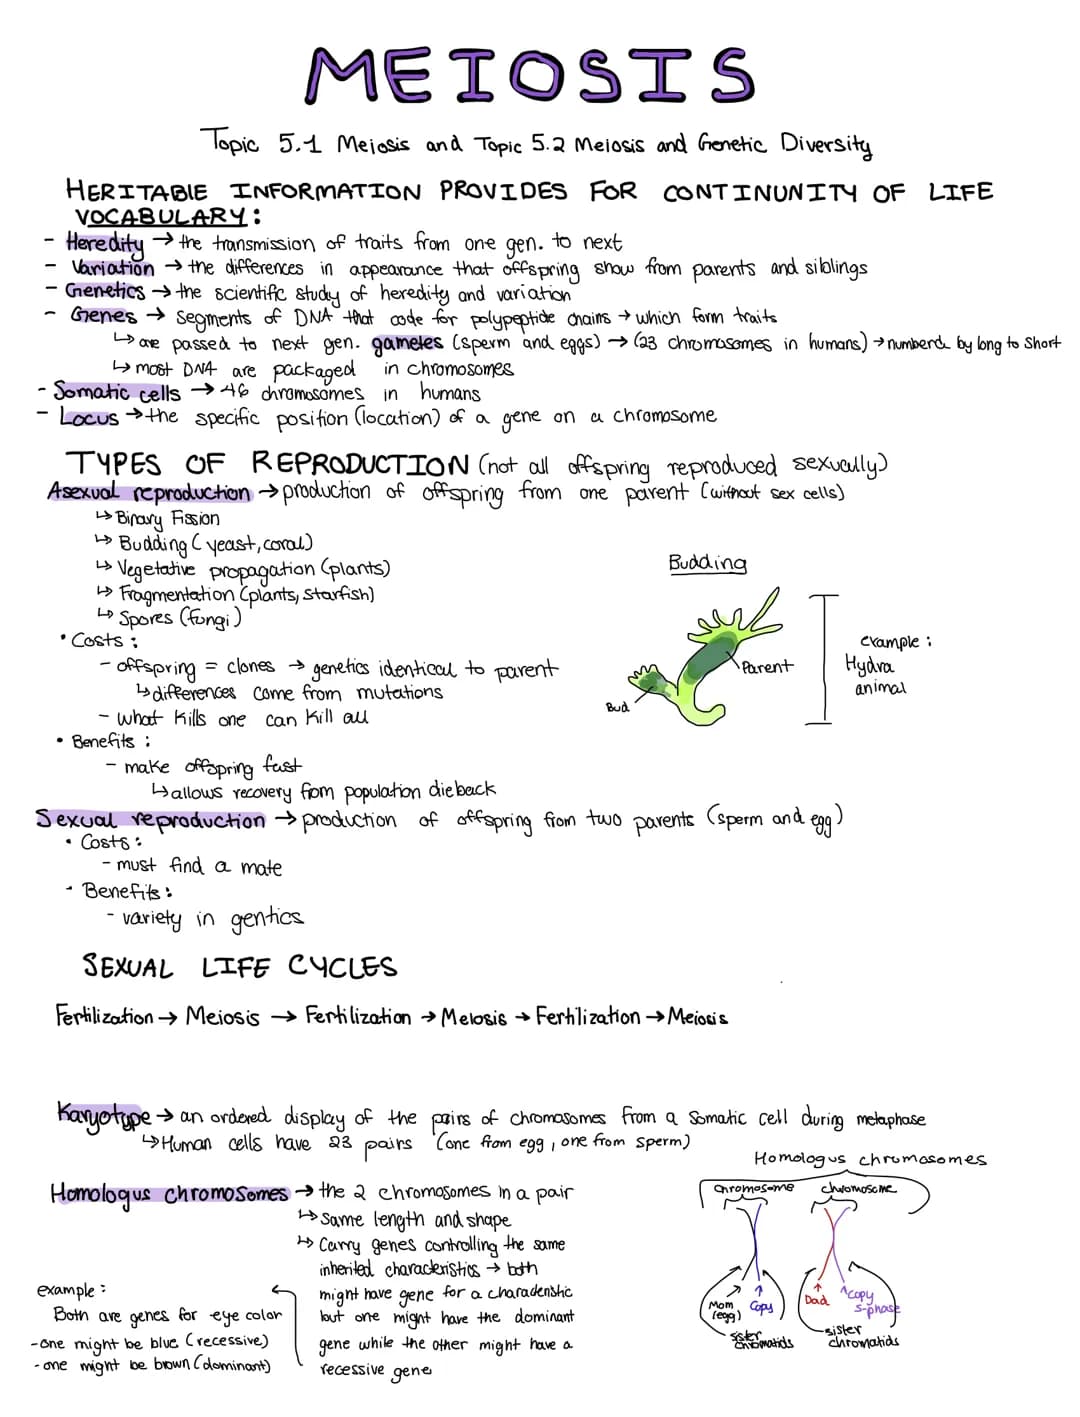 MEIOSIS
Topic 5.1 Meiosis and Topic 5.2 Meiosis and Genetic Diversity
HERITABLE INFORMATION PROVIDES FOR CONTINUNITY OF LIFE
VOCABULARY:
- Heredity → the transmission of traits from one gen. to next
- Variation → the differences in appearance that offspring show from parents and siblings
- Genetics → the scientific study of heredity and variation
- Genes → segments of DNA that code for polypeptide chains → which form traits
↳ are passed to next gen. gametes (sperm and eggs) → (23 chromosomes in humans) → numberd by long to short
↳ most DNA are packaged in chromosomes
- Somatic cells → 46 chromosomes in humans
- Locus → the specific position (location) of a gene on a chromosome
TYPES OF REPRODUCTION (not all offspring reproduced sexually)
Asexual reproduction → production of offspring from one parent (without sex cells)
↳ Binary Fission
↳ Budding (yeast, coral)
↳ Vegetative propagation (plants)
↳ Fragmentation (plants, starfish)
↳ Spores (fungi)
• Costs:
- offspring = clones → genetics identical to parent
↳ differences come from mutations
- what kills one can kill all
• Benefits:
- make offspring fast
↳ allows recovery from population dieback
Budding
Parent
Bud
example:
Hydra
animal
Sexual reproduction → production of offspring from two parents (sperm and egg)
• Costs:
- must find a mate
• Benefits:
- variety in gentics
SEXUAL LIFE CYCLES
Fertilization → Meiosis → Fertilization → Meiosis → Fertilization → Meiosis
Karyotype → an ordered display of the pairs of chromosomes from a somatic cell during metaphase
↳ Human cells have 23 pairs (one from egg, one from sperm)
Homologus chromosomes → the 2 chromosomes in a pair
↳ Same length and shape
↳ Carry genes controlling the same
inherited characteristics → both
might have gene for a charadenstic
but one might have the dominant
gene while the other might have a
recessive gene
example:
Both are genes for eye color
- one might be blue (recessive)
- one might be brown (dominant)
Homologus chromosomes
chromosome chromosome
Mom (egg) Copy
sister chromatids
Dad copy s-phase
sister chromatids